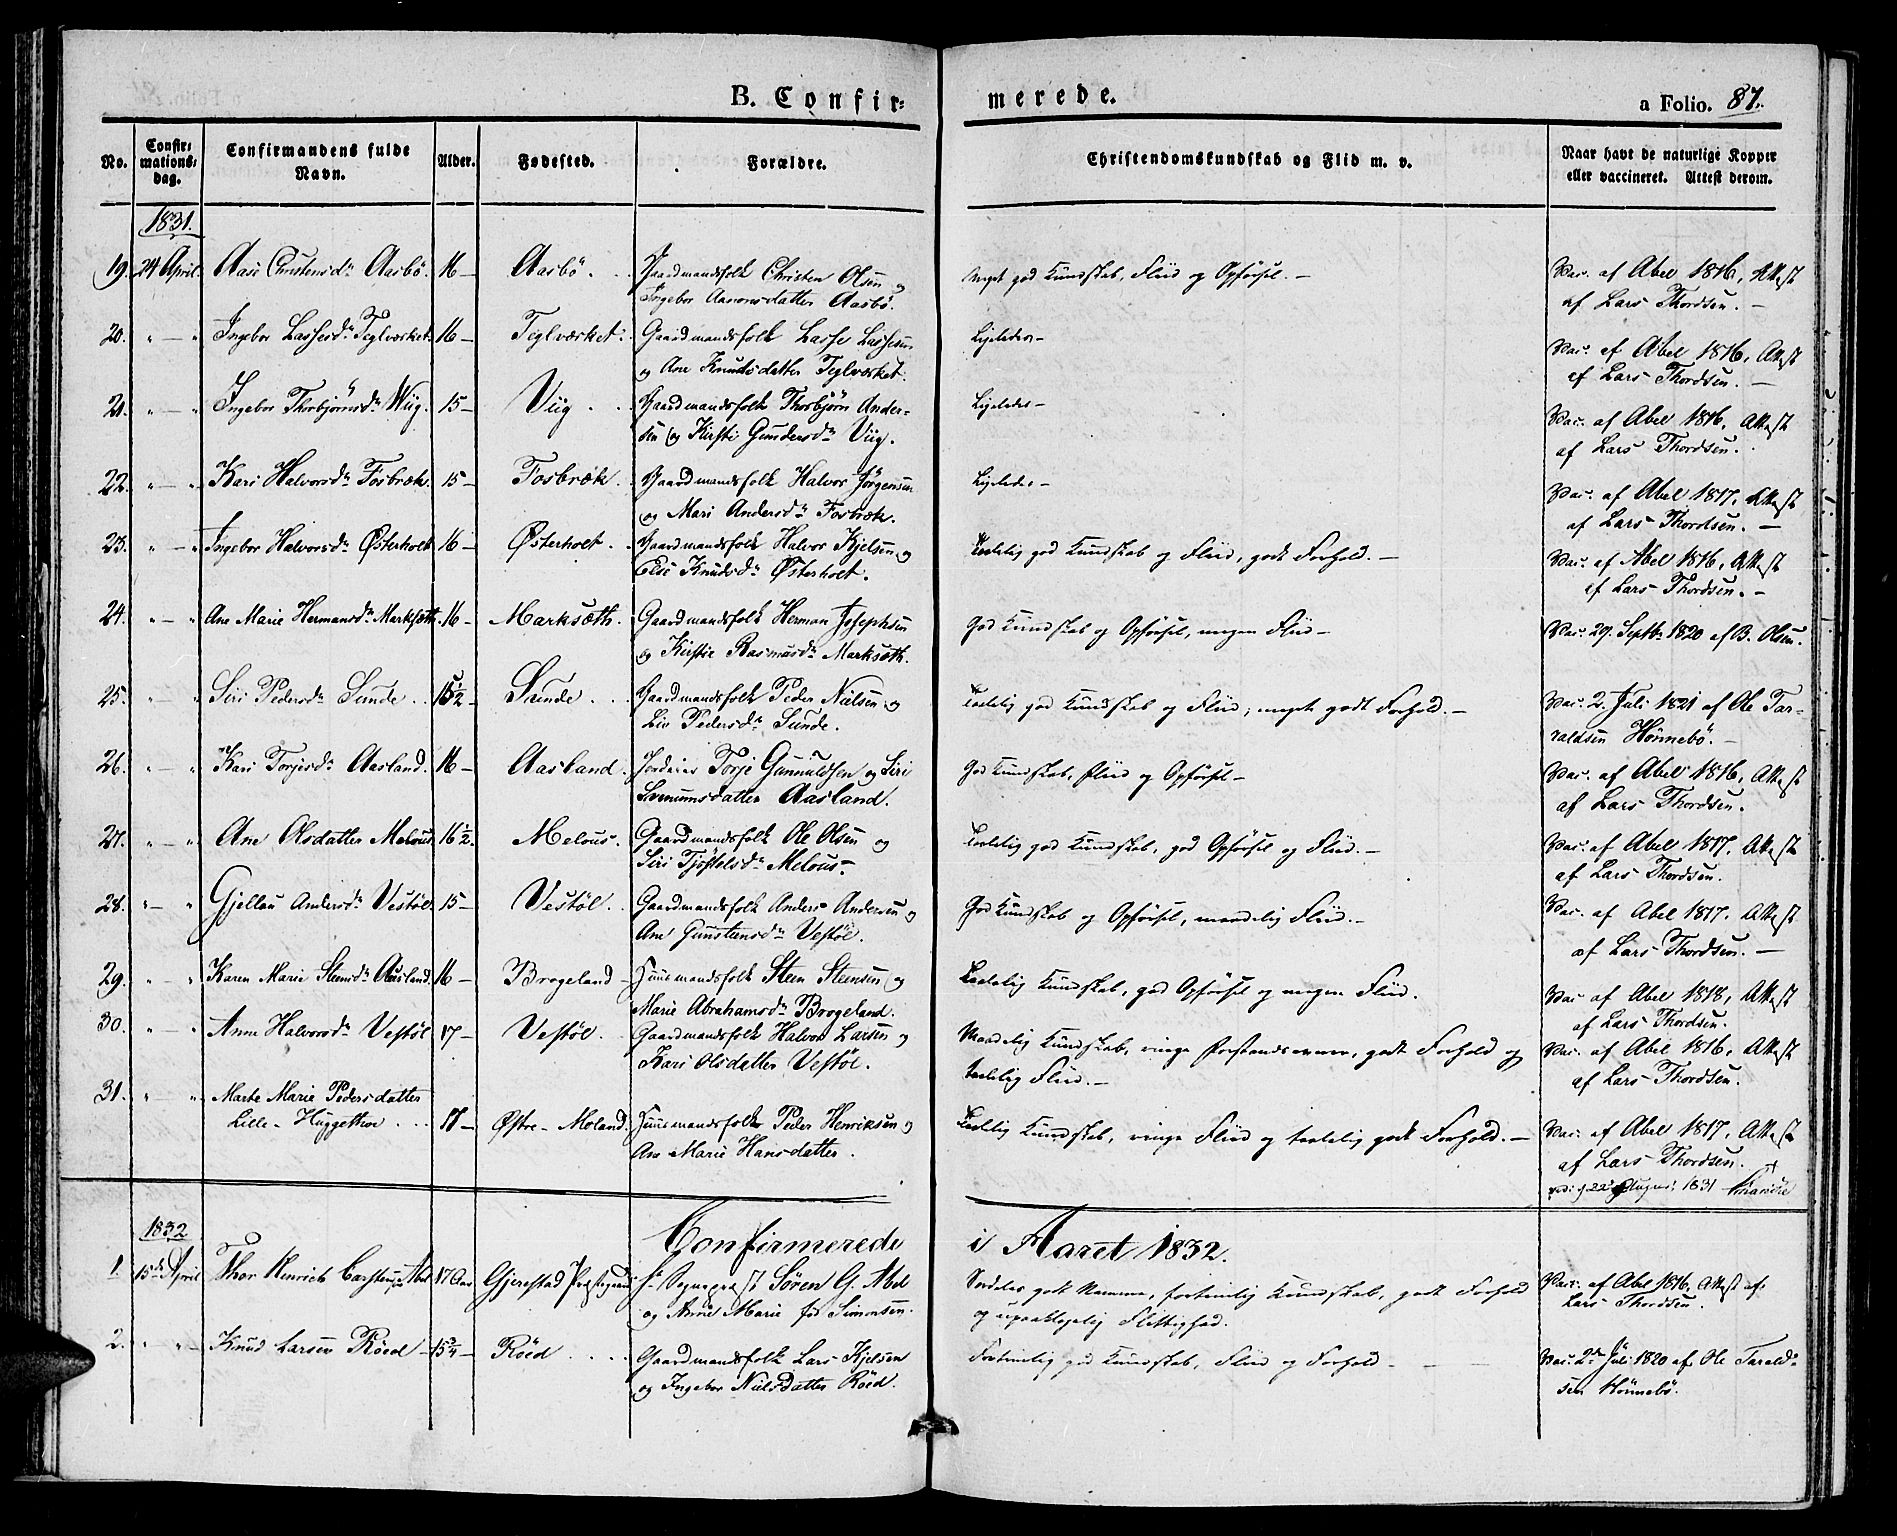 B. Confir-
merede.
a Folio. 87.
No.
Confir-
mations-
dag.
Confirmandens fulde
Navn.
Alder.
Fødested.
Forældre.
Christendomskundskab og Flid m. v.
Naar havt de naturlige Kopper
eller vaccineret. Attest derom.
1831.
19. 24 April. Aase Christensdr Aasbö. 16 — Aasbö. Gaardmandsfolk Christen Olsen og
Ingebor Aanonsdatter Aasbö.
Meget god Kundskab, Fliid og Opførsel. —
Vac. af Abel 1816, Attest
af Lars Thordsen. —
20. " — " Ingebor Lassesdr Teglværket 16 — Teglværket. Gaardmandsfolk Lasse Lassesen
og Ane Knudsdatter Teglværket.
Ligeledes —
Vac. af Abel 1816, Attest
af Lars Thordsen. —
21. " — " Ingebor Thorbjörnsdr Wiig. 15 — Viig. Gaardmandsfolk Thorbjörn Ander-
sen og Kirsti Gundersdr Viig.
Ligeledes —
Vac. af Abel 1816, Attest
af Lars Thordsen.
22. " — " Kari Halvorsdr Fosbræk. 15 — Fosbræk. Gaardmandsfolk Halvor Jörgensen
og Mari Andersdr Fosbræk.
Ligeledes —
Vac. af Abel 1817, Attest
af Lars Thordsen. —
23. " — " Ingebor Halvorsdr Østerholt 16 — Østerholt. Gaardmandsfolk Halvor Kjelsen og
Else Knudsdr Østerholt.
Taalelig god Kundskab og Fliid, godt Forhold. —
Vac. af Abel 1816, Attest
af Lars Thordsen. —
24. " — " Ane Marie Hermansdr Marksæth 16 — Marksæth. Gaardmandsfolk Herman Josephsen
og Kirstie Rasmusdr Marksæth.
God Kundskab og Opførsel, megen Fliid —
Vac. 29. Septbr 1820 af B. Olsen.
25. " — " Siri Pedersdr Sunde 15 1/2 — Sunde Gaardmandsfolk Peder Nielsen og
Liv Pedersdr Sunde.
Taalelig god Kundskab og Fliid, meget godt Forhold. —
Vac. 2. Juli 1821 af Ole Ta-
raldsen Hönnebö. —
26. " — " Kari Torjesdr Aasland. 16 — Aasland. Torje Gunnuldsen og Siri
Sveniumsdatter Aasland.
God Kundskab, Fliid og Opførsel —
Vac. af Abel 1816, Attest
af Lars Thordsen.
27. " — " Ane Olsdatter Melous 16 1/2. Melous. Gaardmandsfolk Ole Olsen og
Siri Tjöstelsdr Melous.
Taalelig god Kundskab, god Opførsel og Fliid. —
Vac. af Abel 1817. Attest
af Lars Thordsen.
28. " — " Gjellau Andersdr Vestöl. 15 — Vestöl. Gaardmandsfolk Anders Andersen og
Ane Gunsteensdr Vestöl.
God Kundskab og Opførsel, maadelig Fliid. —
Vac. af Abel 1817. Attest
af Lars Thordsen. —
29. " " Karen Marie Steensdr Aasland. 16 — Brogeland — Huusmandsfolk Steen Steensen og
Marie Abrahamsdr Brogeland.
Taalelig Kundskab, god Opførsel og megen Fliid.
Vac. af Abel 1818, Attest
af Lars Thordsen.
30. " — " Anne Halvorsdr Vestöl 17 — Vestöl. Gaardmandsfolk Halvor Larsen og
Kari Olsdatter Vestöl.
Maadelig Kundskab, ringe Forstandsevner, godt Forhold og
taalelig Fliid. —
Vac. af Abel 1816, Attest
af Lars Thordsen.
31. " — " Marte Marie Pedersdatter
Lille-Huggethoe 17 — Østre-Moland. Huusmandsfolk Peder Henriksen og
Ane Marie Hansdatter.
Taalelig Kundskab, ringe Fliid og taalelig godt Forhold. —
Vac. af Abel 1817, Attest
af Lars Thordsen.
22 August 1831
Confirmerede i Aaret 1832.
1832
1. 15de April Thor Henrich Carstensen Abel 17 Aar Gjerestad Præstegaard Hr Sognepræst Søren G. Abel
og Anne Marie fød Simonsen.
Særdeles godt Nemme, fortrinlig Kundskab, godt Forhold
og upaaklagelig Flittighed.
Vac. af Abel 1816, Attest af
Lars Thordsen.
2. " " Knud Larsen Röed — 15 3/4 — Röed Gaardmandsfolk Lars Kjelsen
og Ingebor Nielsdatter Röed.
Fortrinlig god Kundskab, Fliid og Forhold —
Vac. 2den Juli 1820 af Ole Tarald-
sen Hönnebö.